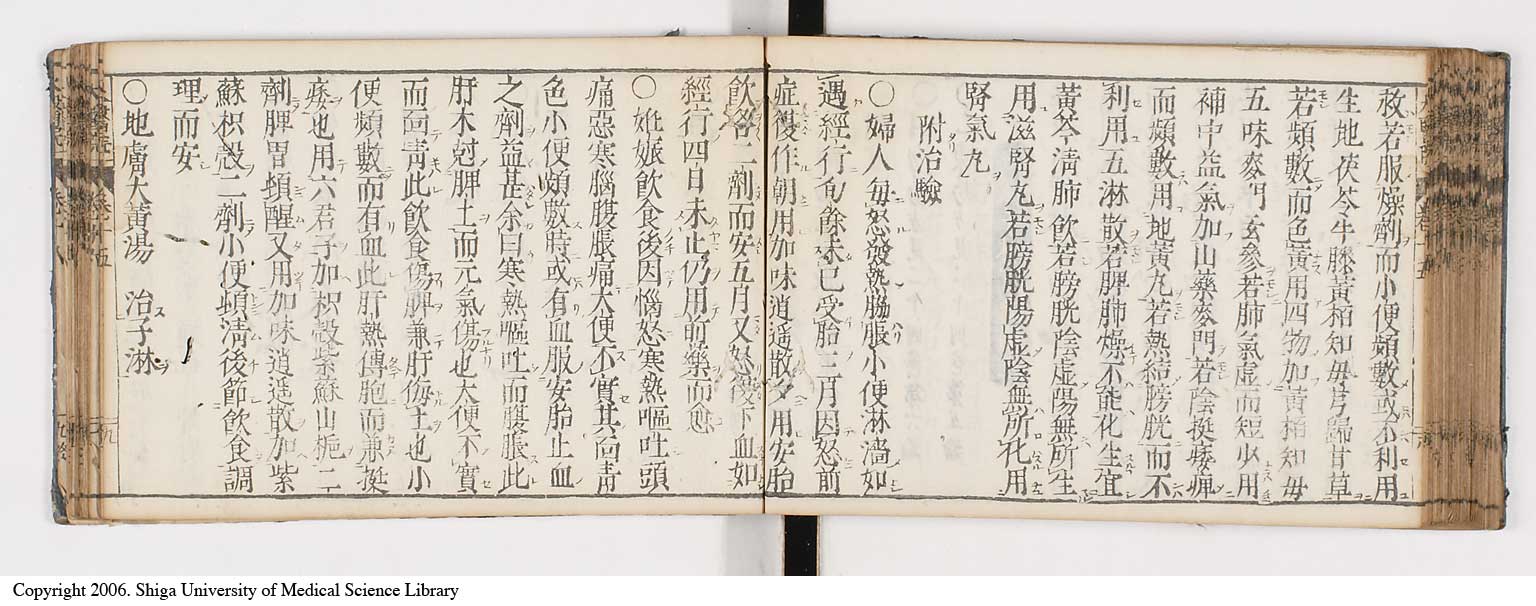 救若服燥劑而小便頻數或不利用
生地茯苓牛膝黃栢知毋芎歸甘草
若頻數而色黃用四物加黃栢知毋
五味麥門玄參若肺氣虛而短少用
補中益氣加山藥麥門若陰挺痿痺
而頻數用地黃丸若熱結膀胱而不
利用五淋散若脾肺燥不能化生宜
黃芩清肺飲若膀胱陰虛陽無所生
用滋腎丸若膀胱陽虛陰無所化用
腎氣丸
附治驗
○婦人每怒發熱脇脹小便淋濇如
遇經行旬餘未已受胎三月因怒前
症復作朝用加味逍遥散夕用安胎
飲各二劑而安五月又怒後下血如
經行四日未止仍用前藥而愈
○姙娠飲食後因惱怒寒熱嘔吐頭
痛惡寒腦腹脹痛大便不實其面青
色小便頻數時或有血服安胎止血
之劑益甚余曰寒熱嘔吐而腹脹此
肝木尅脾土而元氣傷也大便不實
而面青此飲食傷脾兼肝侮土也小
便頻數而有血此肝熱傳胞而兼挺
痿也用六君子加枳殼紫蘇山梔二
劑脾胃頓醒又用加味逍遥散加紫
蘇枳殼二劑小便頓清後節飲食調
理而安
○地膚大黃湯 治子淋
Copyright 2006. Shiga University of Medical Science Library